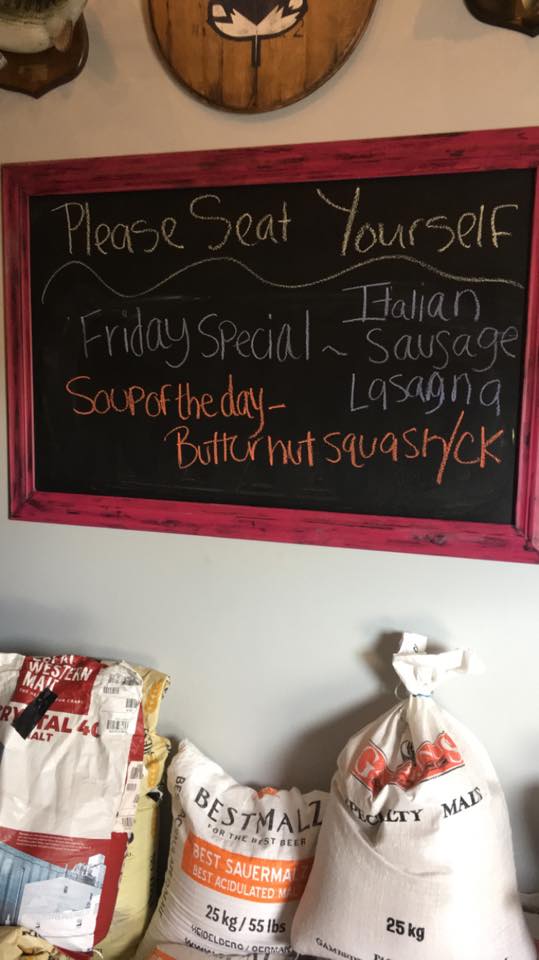 Please Seat Yourself
Friday Special ~ Italian
Sausage
Lasagna
Soup of the day-
Butternut squash/ck
GREAT
WESTERN
MALT
CRYSTAL 40
MALT
BESTMALZ
FOR THE BEST BEER
BEST SAUERMALZ
BEST ACIDULATED MALT
25 kg / 55 lbs
HEIDELBERG / GERMANY
SPECIALTY MALT
25 kg